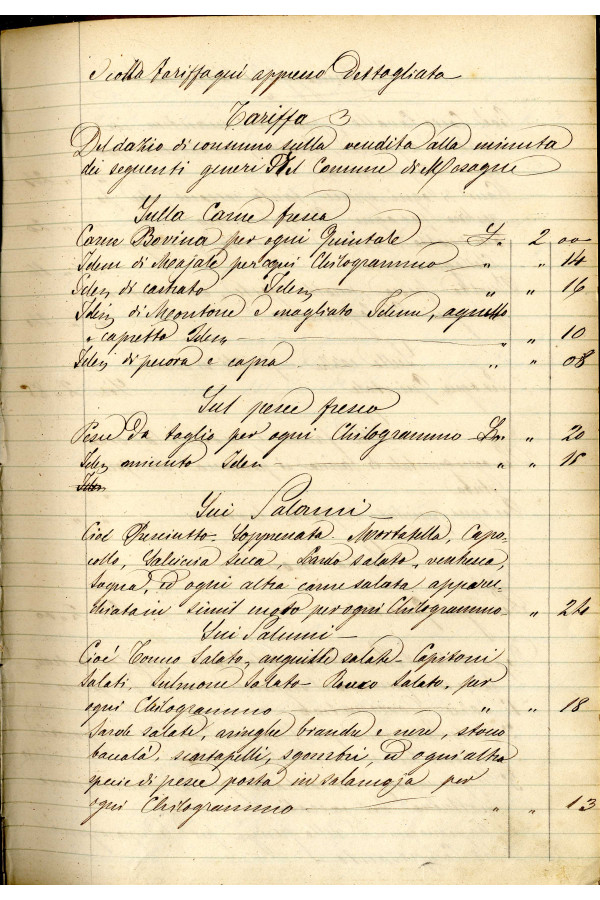 tariffa qui appresso Dettagliata
Tariffa
Del dazio di consumo sulla vendita alla minuta
dei seguenti generi Nel Comune di Mesagne
Sulla Carne fresca
Carne Bovina per ogni Quintale L. 2 00
Idem di Majale per ogni Chilogrammo " " 14
Idem di castrato Idem " " 16
Idem di Montone e magliato Idemm, agnello
e capretto Idem " " 10
Idem di pecora e capra " " 08
Sul pesce fresco
Pesce Da taglio per ogni Chilogrammo " 20
Idem minuto Idem " " 15
Idem
Sui Salami
Cioè Presciutto, Soppressata Mortatella, Capo-
collo, Salsiccia secca, Lardo salato, ventresca,
Sogna, ed ogni altra carne salata apparec-
chiata in simil modo per ogni Chilogrammo " 24
Sui Salumi
Cioè Tonno Salato, anguille salate Capitoni
Salati, Salmone Salato Salato, per
ogni Chilogrammo " " 18
Sarde salate, aringhe e nere, stocco
baccalà, scartapelli, sgombri, ed ogni altra
specie di pesce posta in salamoja per
ogni Chilogrammo " " 13